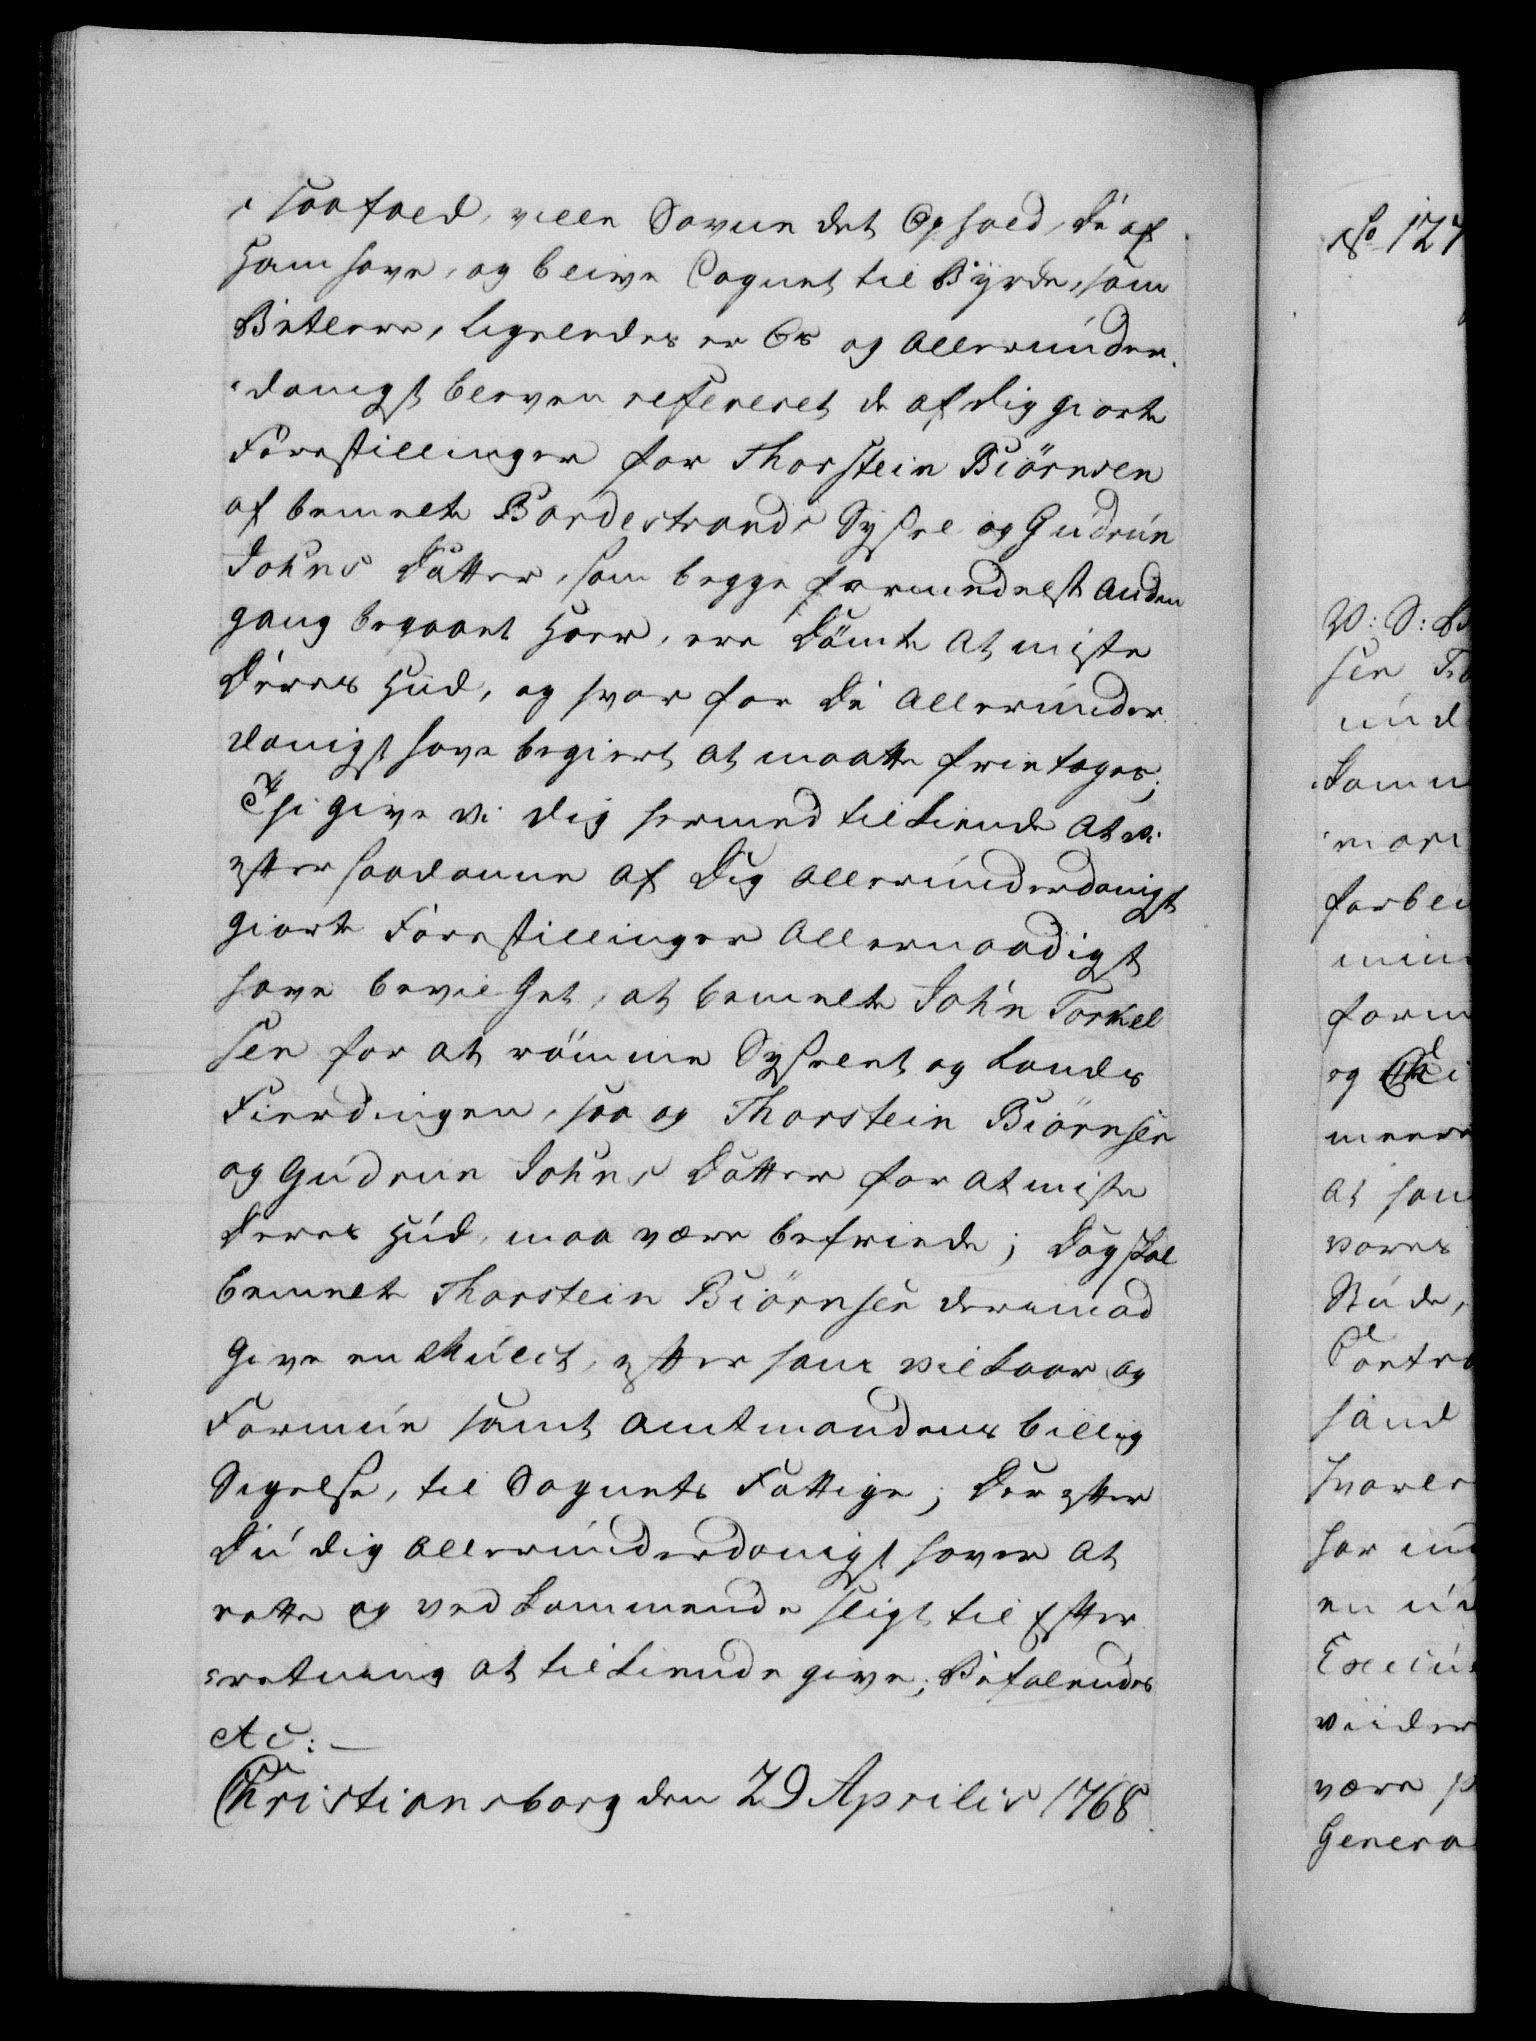 i saafald, ville Savne det Ophold, De af
Ham have, og blive Sognet til Byrde, som
Betlere, ligeledes er Os og allerunder-
-danigst bleven refereret de af dig giorte
Forestillinger for Thorstein Biörnsen
af bemelte Bardestrands Syssel og Gudrun
Johns Datter, som begge formedelst anden
gang begaaet Hoer, ere Dömte at miste
Deres Hud, og hvor for De allerunder-
danigst have begiert at maatte fritages;
Thi give vi dig hermed tilkiende at vi
efter saadanne af Dig allerunderdanigst
giorte Forestillinger Allernaadigst
have bevilget, at bemelte John Torkel
sen for at römme Sysselet og Lands
Fierdingen, saa og Thorstein Biörnsen
og Gudrun Johns Datter for at miste
Deres Hud, maa være befriede; Dog skal
bemelte Thorstein Biörnsen derimod
give en Mulct, efter hans vilkaar og
Formue samt Amtmandens billig
Sigelse, til Sognets Fattige; Der efter
Du dig allerunderdanigst haver at
rette og ved kommende sligt til Efter-
-retning at tilkiende give; Befalendes
etc:
Christiansborg den 29 Aprilis 1768.
No 127
W: S: B
sen
und
komm

forbei
min
form
og
meere
at han
vores

Contr
sand

har ind
en
Execu
viider
være
Genera